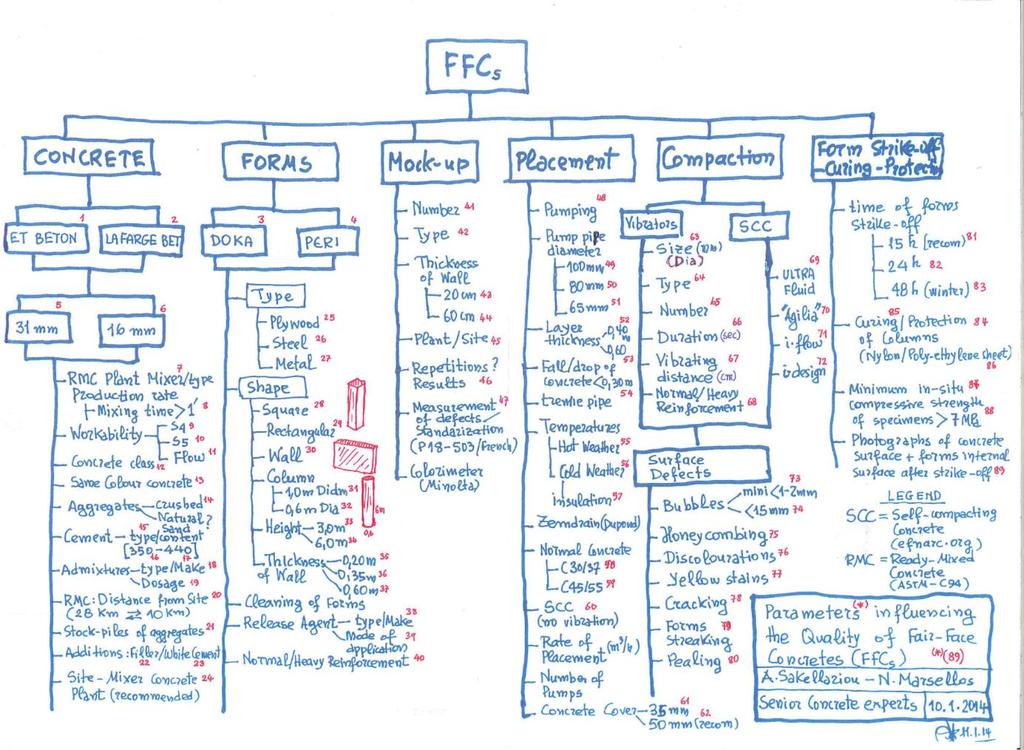 FFCs
CONCRETE
1
2
ET BETON
LAFARGE BET
5
6
31 mm
16 mm
RMC Plant Mixer/type 7
Production rate
Mixing time > 1' 8
Workability
S4 9
S5 10
Flow 11
Concrete class 12
Same Colour concrete 13
Aggregates - crushed 14
Natural?
Sand
Cement - type/content 15
[350-440]
16 17
Admixtures - type/Make 18
Dosage 19
RMC: Distance from Site 20
(28 Km ⇄ 10 Km)
Stock-piles of aggregates 21
Additions: Filler/White Cement
22 23
Site-Mixer Concrete 24
Plant (recommended)
FORMS
3
4
DOKA
PERI
Type
Plywood 25
Steel 26
Metal 27
Shape
Square 28
Rectangular 29
Wall 30
Column
1,0m Diam 31
0,6m Dia 32
6m
0,6
Height - 3,0m 33
6,0m 34
Thickness of Wall
0,20m 35
0,35m 36
0,60m 37
Cleaning of Forms
Release Agent - type/Make 38
Mode of application 39
Normal/Heavy Reinforcement 40
Mock-up
Number 41
Type 42
Thickness
of Wall
20 cm 43
60 cm 44
Plant/Site 45
Repetitions?
Results 46
Measurement 47
of defects/
Standarization
(P18-503/French)
Colorimeter
(Minolta)
Placement
Pumping 48
Pump pipe
diameter
100mm 49
80mm 50
65mm 51
Layer 52
thickness
0,40
0,60
Fall/drop of 53
concrete < 0,30m
tremie pipe 54
Temperatures
Hot Weather 55
Cold Weather 56
insulation 57
Zemdrain (Dupond)
Normal Concrete
C30/37 58
C45/55 59
SCC 60
(no vibration)
Rate of
Placement (m³/h)
Number of
Pumps
Concrete Cover - 35mm 61
50mm (recom) 62
Compaction
Vibrators
SCC
Size (mm) 63
(Dia)
Type 64
Number 65
Duration (sec) 66
Vibrating 67
distance (cm)
Normal/Heavy
Reinforcement 68
69
ULTRA
Fluid
"Agilia" 70
i-flow 71
i-design 72
Surface
Defects
Bubbles
mini < 1-2mm 73
< 15mm 74
Honeycombing 75
Discolourations 76
Yellow stains 77
Cracking 78
Forms 79
Streaking
Pealing 80
Form Strike-off
-Curing-Protect
time of forms
strike-off
15 h (recom) 81
24 h 82
48 h (winter) 83
85
Curing/Protection 84
of Columns
(Nylon/Poly-ethylene sheet)
86
Minimum in-situ 87
compressive strength
of specimens > 7 MPa 88
Photographs of concrete
Surface + forms internal
surface after strike-off 89
LEGEND
SCC = Self-compacting
Concrete
(efnarc.org)
RMC = Ready-Mixed
Concrete
(ASTM-C94)
Parameters (*) influencing
the Quality of Fair-Face
Concretes (FFCs) (*)(89)
A. Sakellariou - N. Marsellos
Senior Concrete experts
10.1.2014
11.1.14